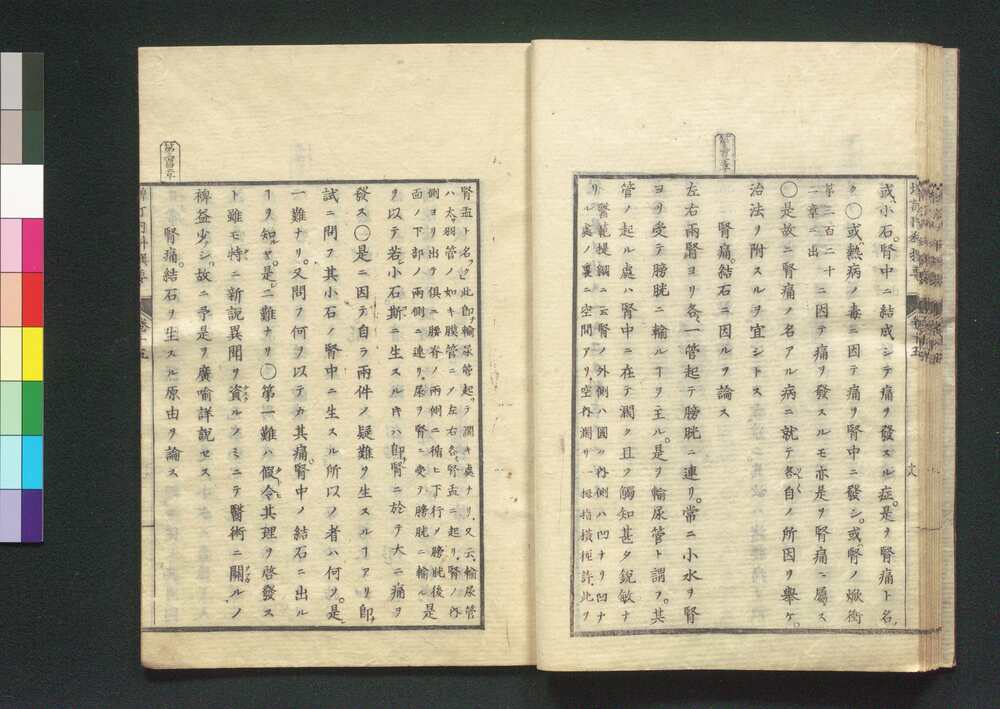 或小石腎中ニ結成シテ痛ヲ發スル症。是ヲ腎痛ト名
ク〇或熱病ノ毒ニ因テ痛ヲ腎中ニ發シ。或腎ノ焮衝
第二百二十
二章ニ出
ニ因テ痛ヲ發スルモ亦是ヲ腎痛ニ屬ス
〇是故ニ腎痛ノ名アル病ニ就テ各自ノ所因ヲ擧ケ。
治法ヲ附スルヲ宜シトス
腎痛。結石ニ因ルヲ論ス
左右兩腎ヨリ各一管起テ膀胱ニ連リ。常ニ小水ヲ腎
ヨリ受テ膀胱ニ輸ルヿヲ主ル。是ヲ輸尿管ト謂フ。其
管ノ起ル處ハ腎中ニ在テ濶ク且ツ觸知甚タ銳敏ナ
リ
醫範提綱ニ云腎ノ外側ハ圓ク內側ハ凹ナリ凹ナ
ル處ノ裏ニ空間アリ。空內濶サ一拇指橫徑許。此ヲ
腎盂ト名ク。此即輸尿管起テ濶キ處ナリ。又云輸尿管
ハ太サ羽管ノ如キ膜管ニメ左右各腎盂ニ起リ。腎ノ內
側ヨリ出テ俱ニ腰脊ノ兩側ニ循ヒ下行メ膀胱後
面ノ下部ノ兩側ニ連リ。尿ヲ腎ニ受テ膀胱ニ輸ル
是
ヲ以テ若小石斯ニ生スル片ハ即腎ニ於テ大ニ痛ヲ
發ス〇是ニ因テ自ラ兩件ノ疑難ヲ生スルヿアリ即
試ニ問フ其小石ノ腎中ニ生スル所以ノ者ハ何ソ。是
一難ナリ。又問フ何ヲ以テカ其痛。腎中ノ結石ニ出ル
ヿヲ知ルヤ。是二難ナリ〇第一難ハ假令其理ヲ啓發ス
ト雖モ特ニ新說異聞ヲ資ルノミニテ醫術ニ關ルノ
裨益少シ。故ニ予是ヲ廣喻詳說セス
腎痛。結石ヲ生スル原由ヲ論ス